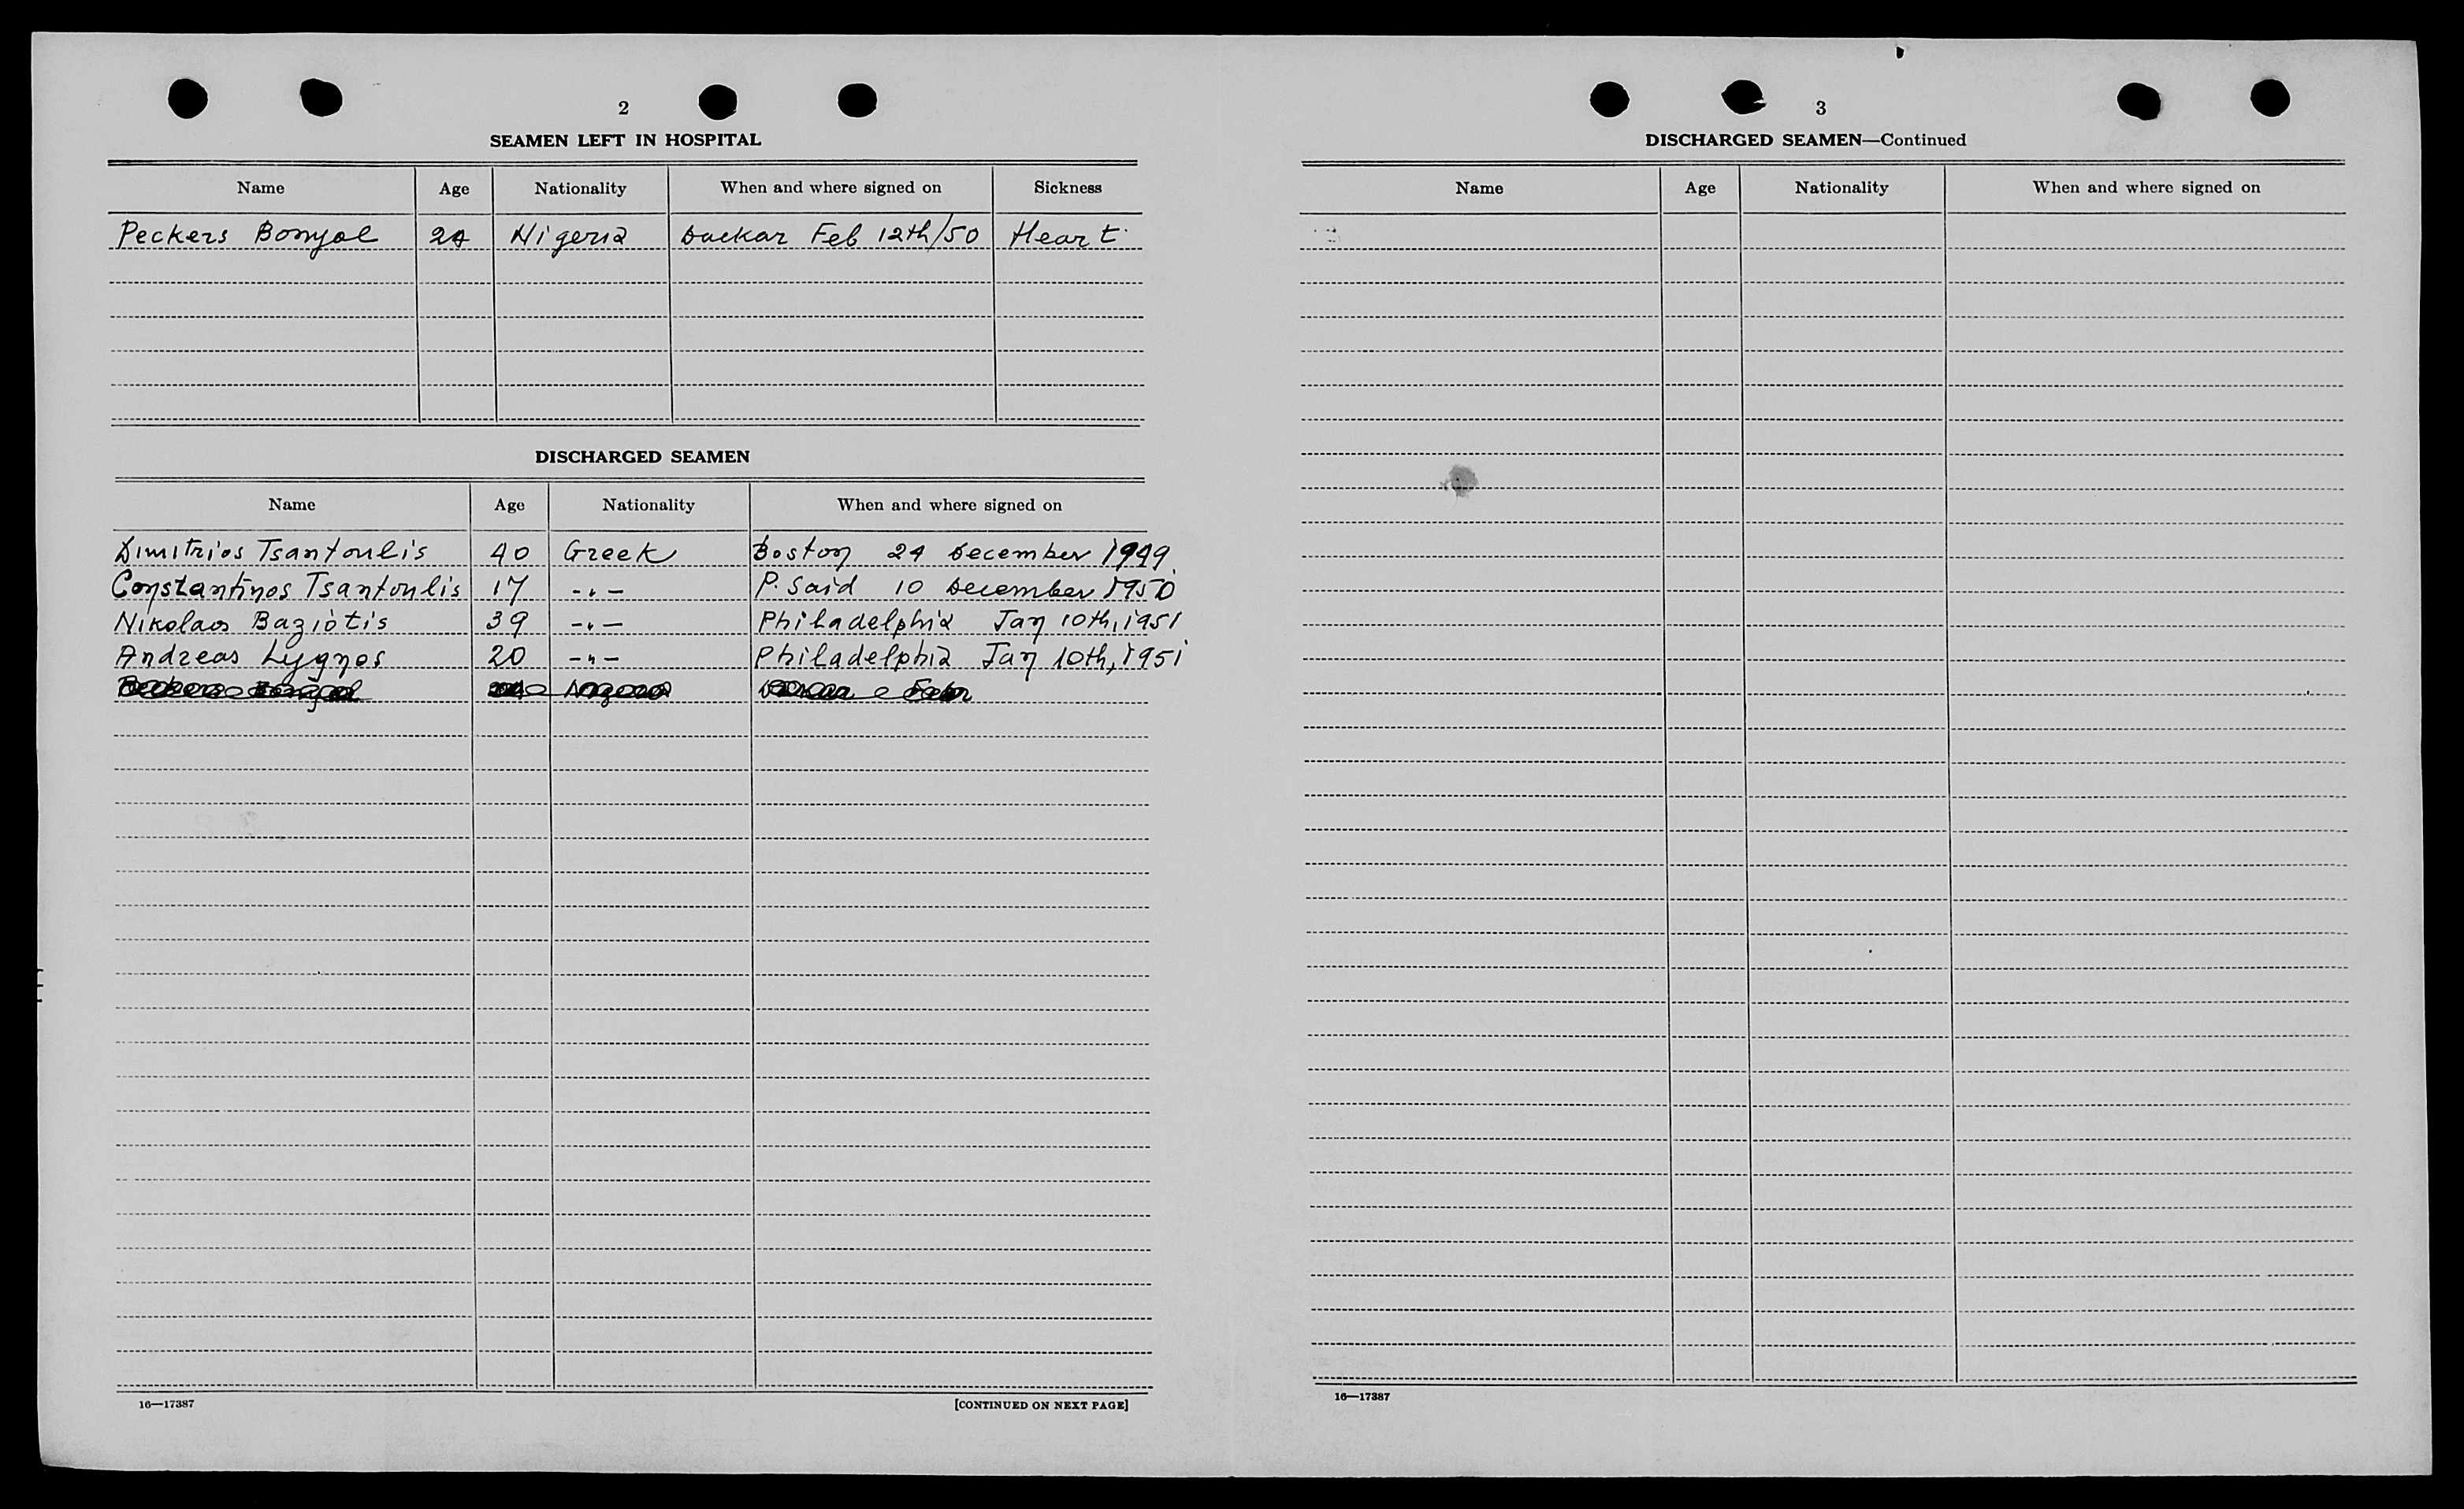 2
SEAMEN LEFT IN HOSPITAL
Name Age Nationality When and where signed on Sickness
Peckers Bonyol 24 Nigeria Dackar Feb 12th/50 Heart
DISCHARGED SEAMEN
Name Age Nationality When and where signed on
Dimitrios Tsantoulis 40 Greek Boston 24 December 1949
Constantinos Tsantoulis 17 -"- P. Said 10 December 1950
Nikolaos Baziotis 39 -"- Philadelphia Jan 10th, 1951
Andreas Lygnos 20 -"- Philadelphia Jan 10th, 1951
16—17387 [CONTINUED ON NEXT PAGE]
3
DISCHARGED SEAMEN—Continued
Name Age Nationality When and where signed on
16—17387